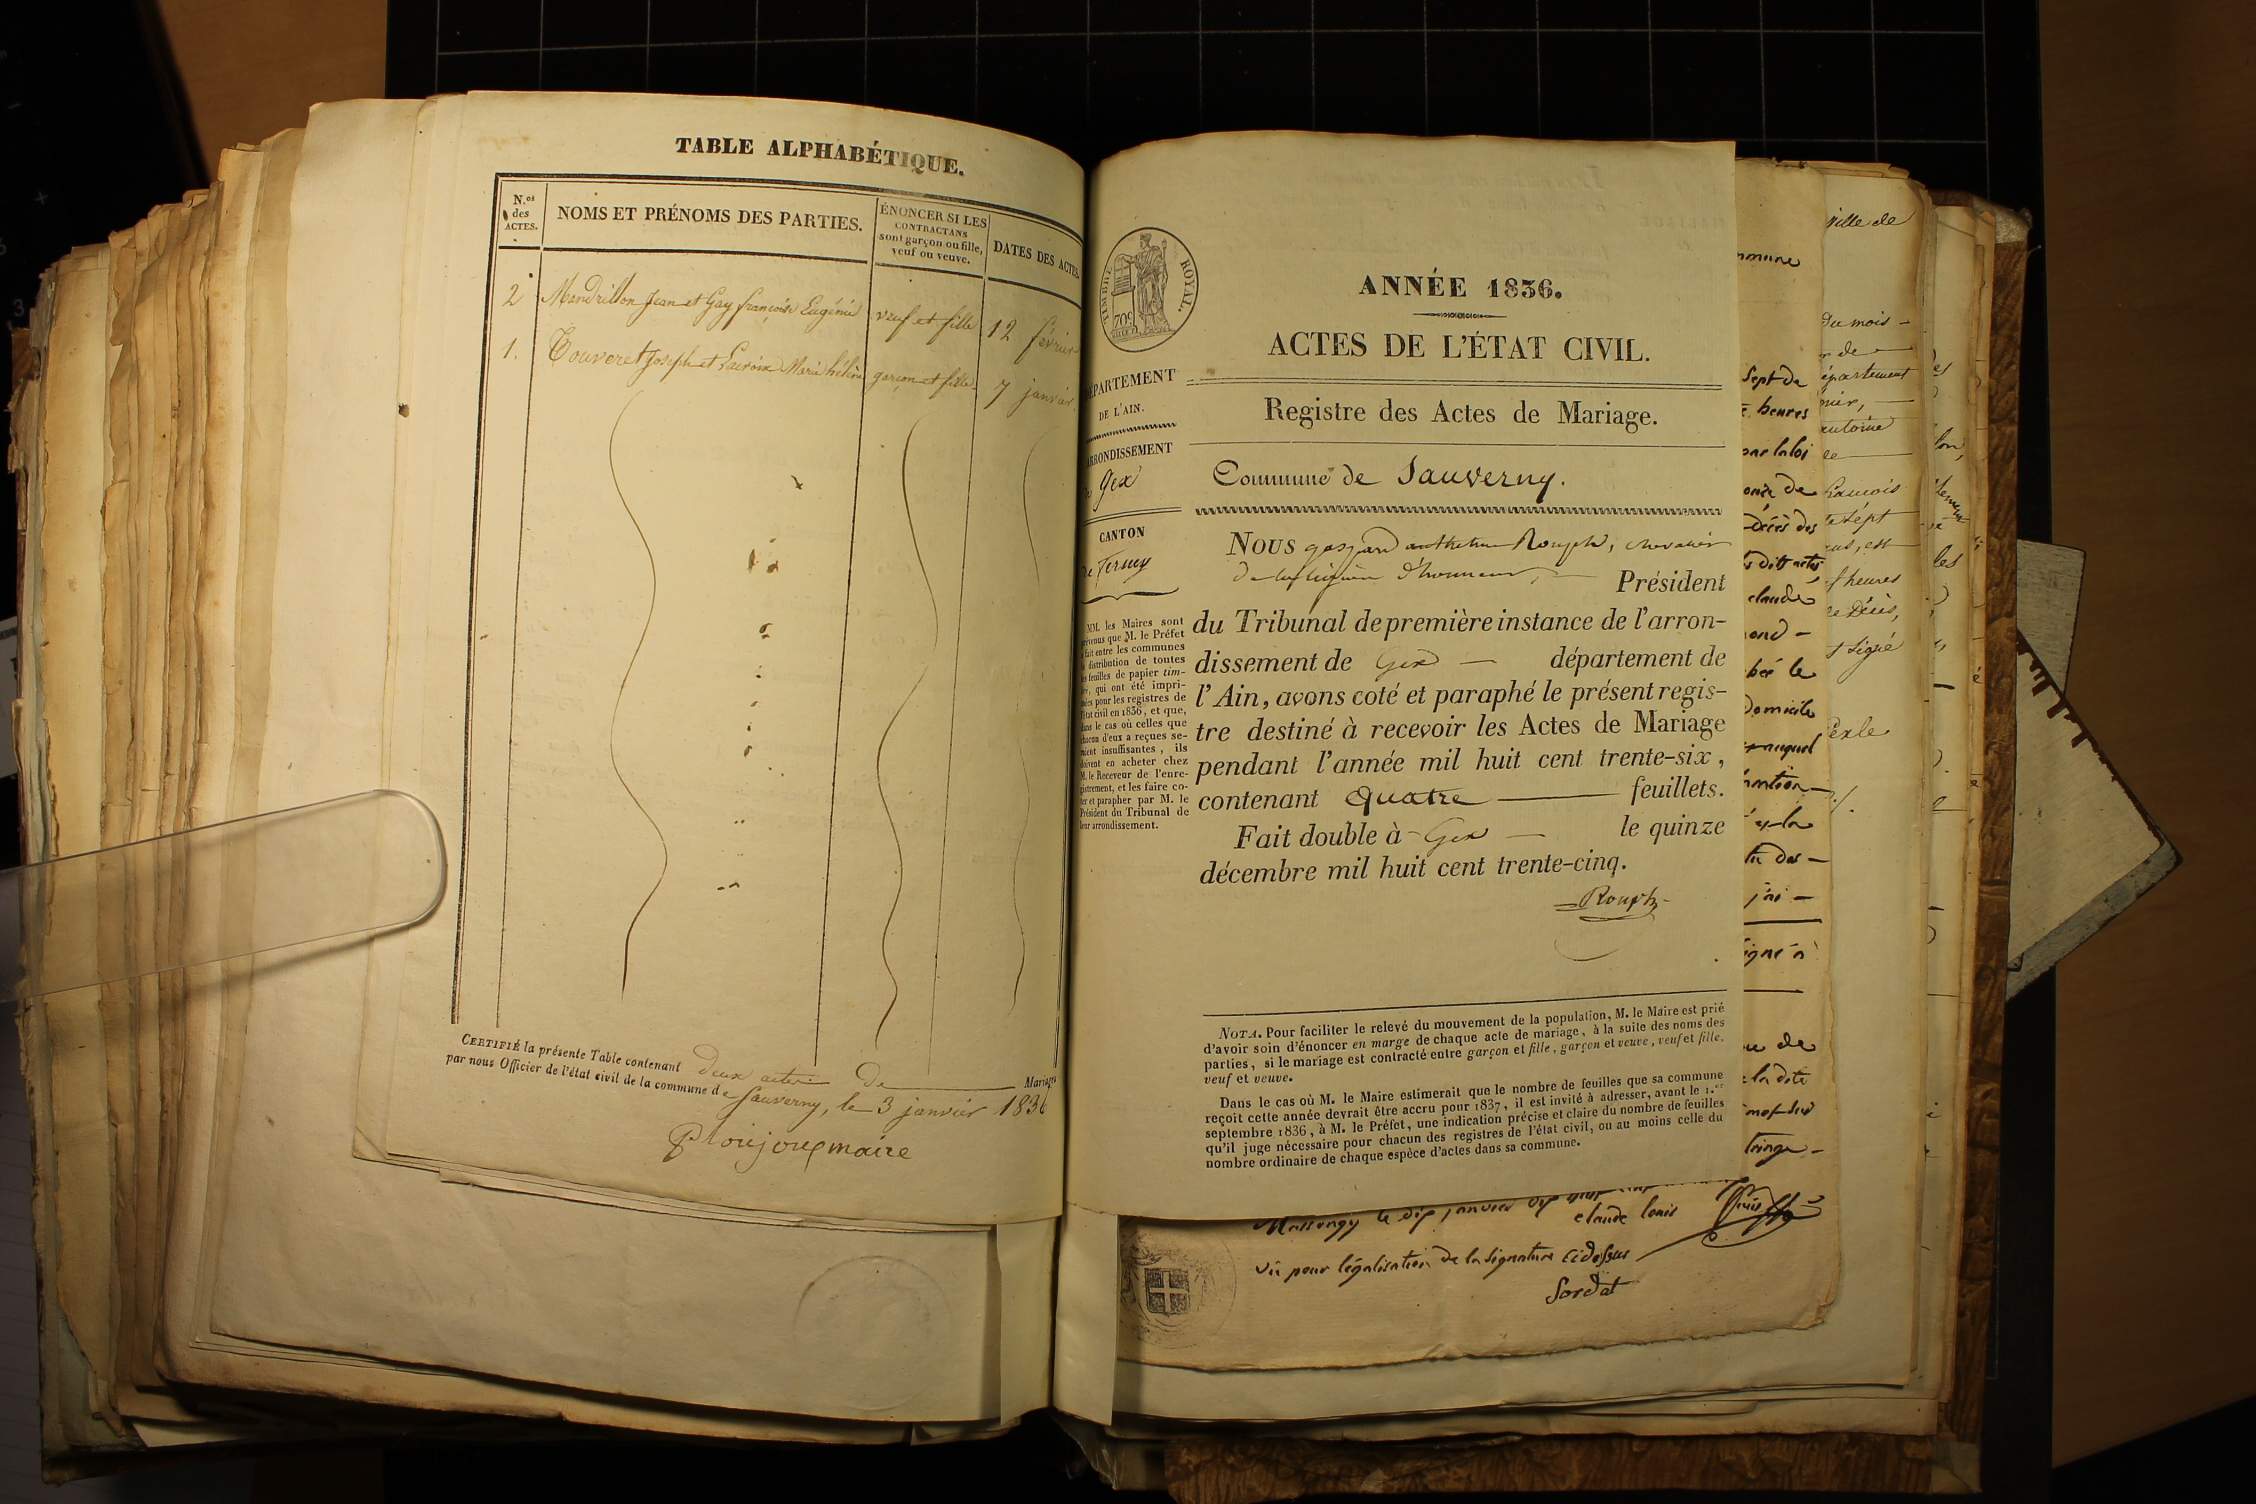 TABLE ALPHABÉTIQUE.
N.os
des
ACTES.
NOMS ET PRÉNOMS DES PARTIES.
ÉNONCER SI LES
CONTRACTANS
sont garçon ou fille,
veuf ou veuve.
DATES DES ACTES.
2 Mandrillon Jean et Gay françoise Eugénie veuf et fille 12 février
1. Touveret Joseph et Lacroix Marie hélène garçon et fille 7 janvier
CERTIFIÉ la présente Table contenant deux actes De Mariages
par nous Officier de l'état civil de la commune de Sauverny, le 3 janvier 1836
maire
TIMBRE ROYAL.
70c
ANNÉE 1836.
ACTES DE L'ÉTAT CIVIL.
DÉPARTEMENT
DE L'AIN.
ARRONDISSEMENT
Gex
CANTON
de Ferney
MM. les Maires sont
prévenus que M. le Préfet
fait entre les communes
distribution de toutes
les feuilles de papier tim-
bré, qui ont été impri-
mées pour les registres de
l'état civil en 1836, et que,
dans le cas où celles que
chacun d'eux a reçues se-
raient insuffisantes, ils
doivent en acheter chez
M. le Receveur de l'enre-
gistrement, et les faire co-
ter et parapher par M. le
Président du Tribunal de
leur arrondissement.
Registre des Actes de Mariage.
Commune de Sauverny.
Nous gaspard anthelme Rouph, chevalier
de la légion d'honneur, Président
du Tribunal de première instance de l'arron-
dissement de Gex — département de
l'Ain, avons coté et paraphé le présent regis-
tre destiné à recevoir les Actes de Mariage
pendant l'année mil huit cent trente-six,
contenant quatre — feuillets.
Fait double à - Gex — le quinze
décembre mil huit cent trente-cinq.
Rouph
NOTA. Pour faciliter le relevé du mouvement de la population, M. le Maire est prié
d'avoir soin d'énoncer en marge de chaque acte de mariage, à la suite des noms des
parties, si le mariage est contracté entre garçon et fille, garçon et veuve, veuf et fille,
veuf et veuve.
Dans le cas où M. le Maire estimerait que le nombre de feuilles que sa commune
reçoit cette année devrait être accru pour 1837, il est invité à adresser, avant le 1.er
septembre 1836, à M. le Préfet, une indication précise et claire du nombre de feuilles
qu'il juge nécessaire pour chacun des registres de l'état civil, ou au moins celle du
nombre ordinaire de chaque espèce d'actes dans sa commune.
Massongy le dix janvier
claude louis
vu pour légalisation de la signature cidessus
Sordat
ville de
du mois
de
département
sept
heures
Décès,
signé
Sept de
heures
par la loi
décès des
claude
domicile
auquel